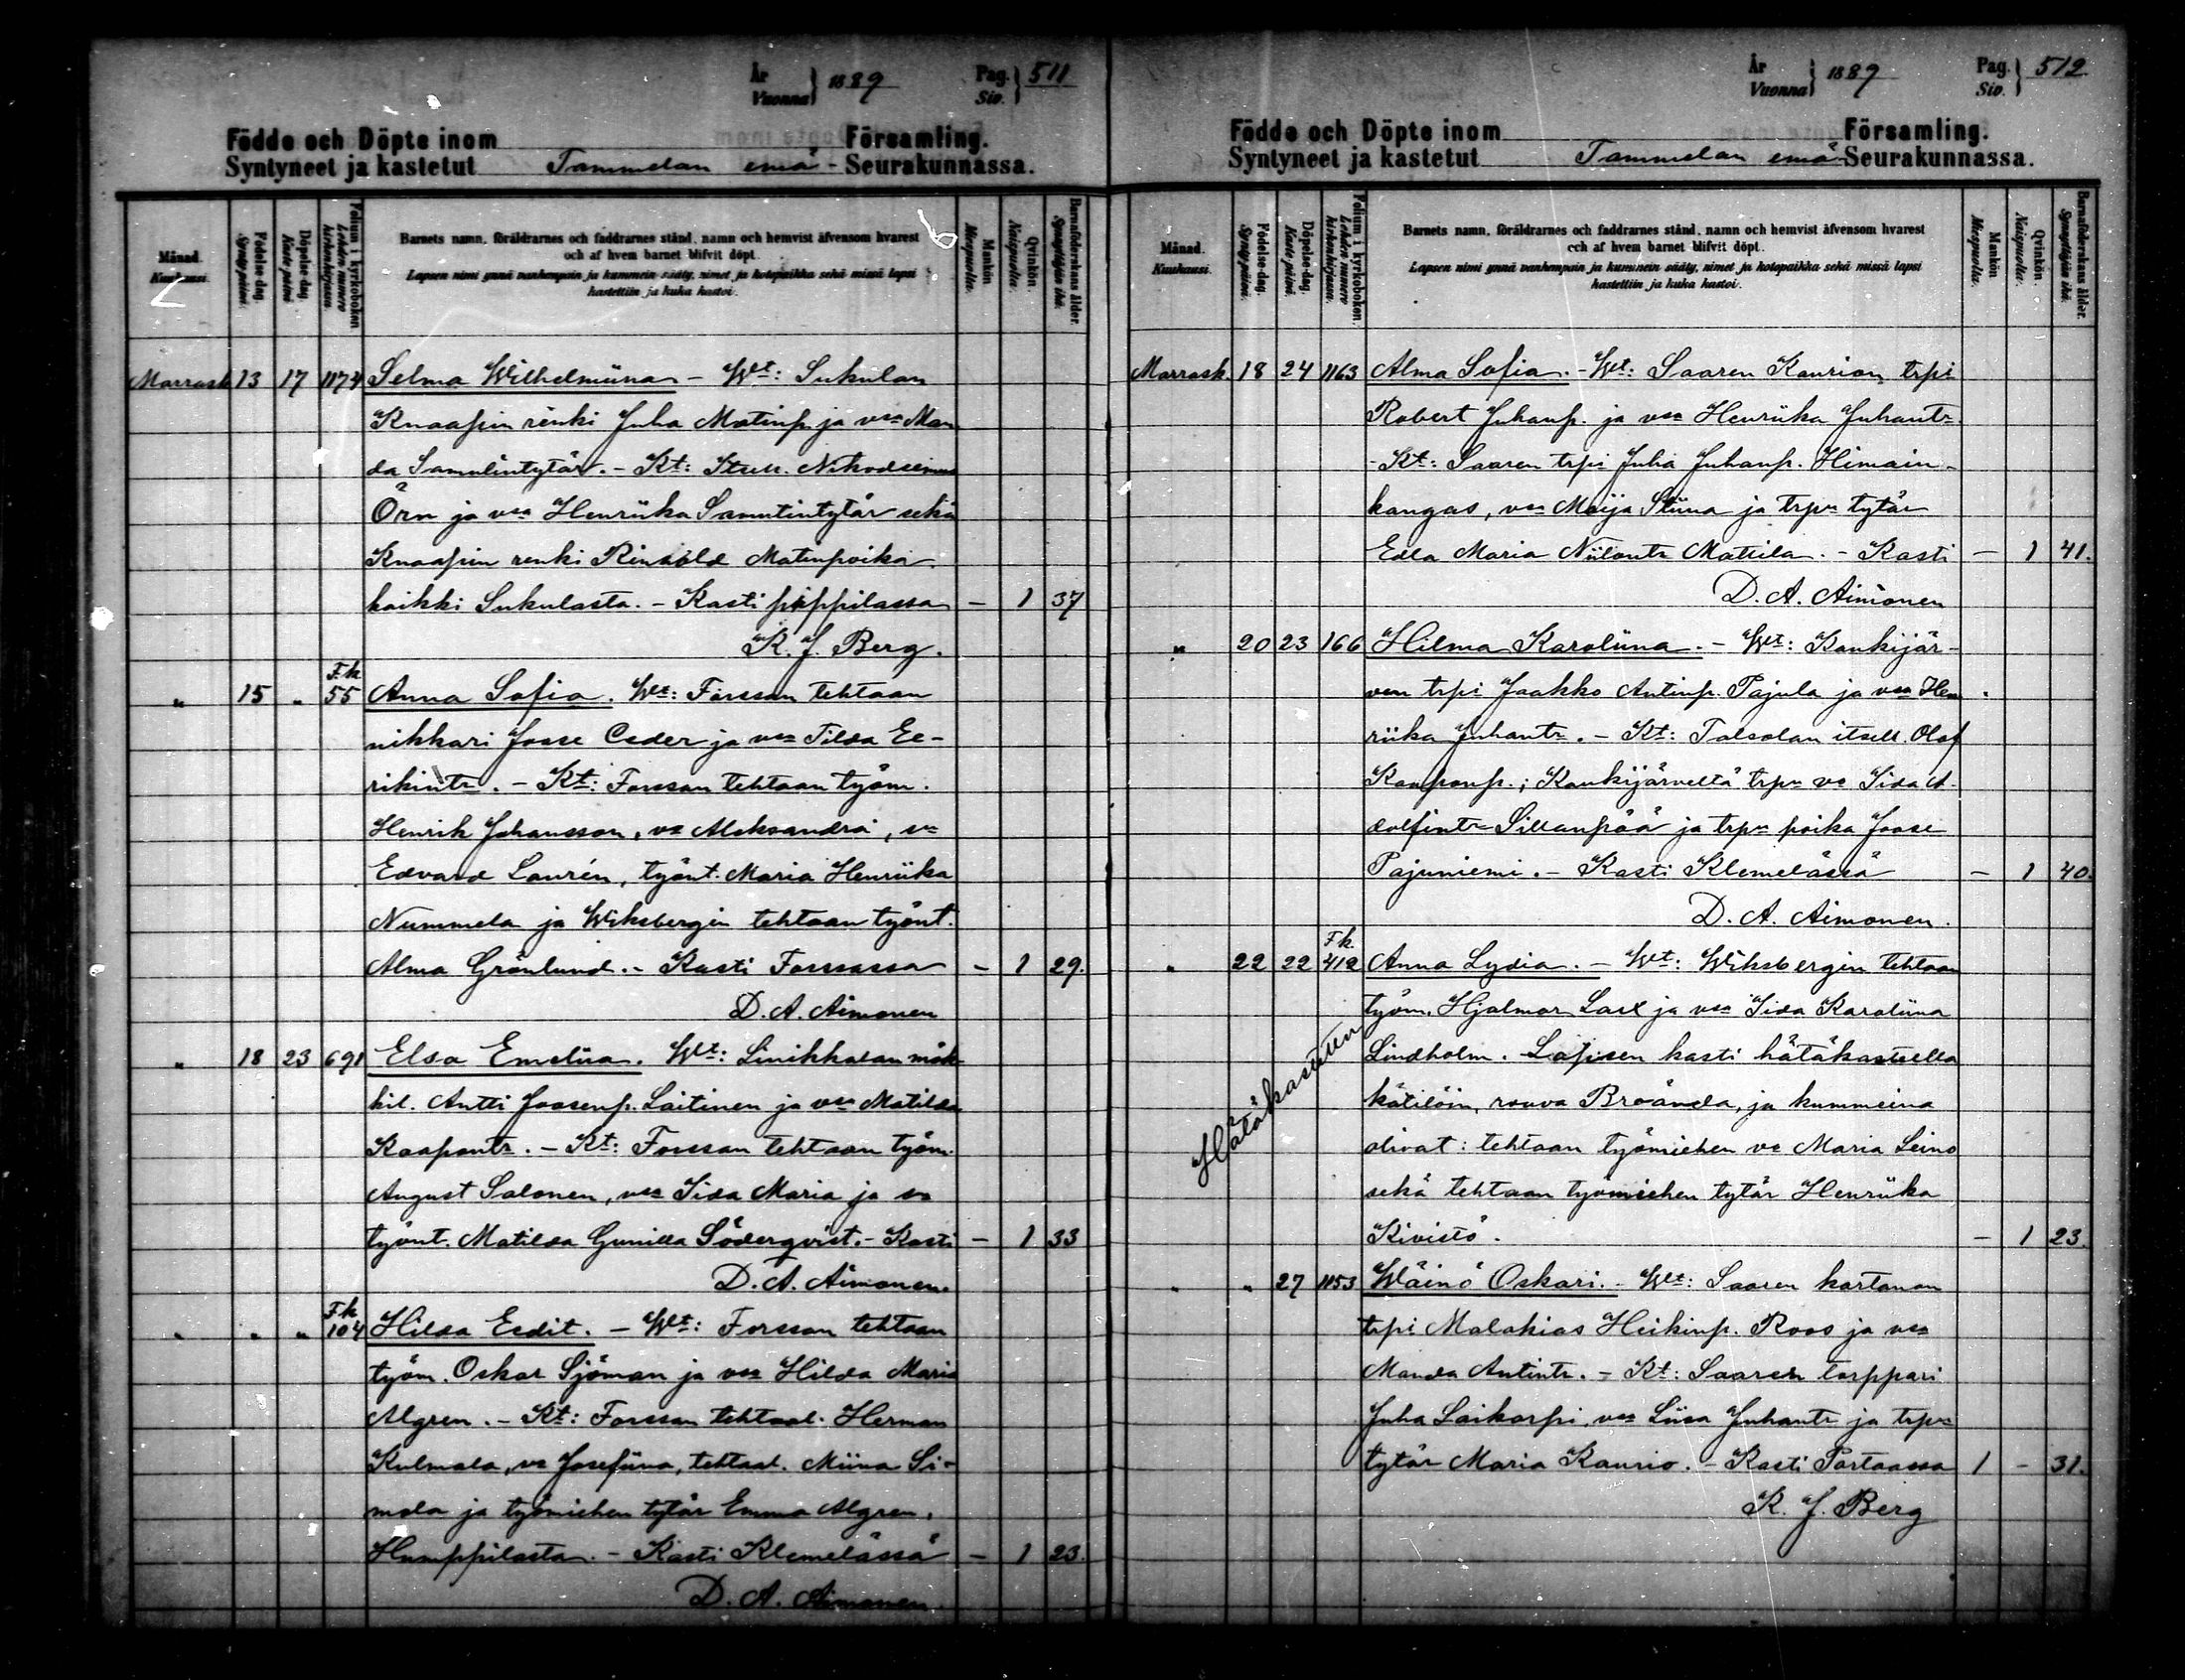 År
Vuonna } 1889 Pag.
Siv. } 511
Födde och Döpte inom Församling.
Syntyneet ja kastetut Tammelan emä - Seurakunnassa.
Månad.
Kuukausi.
Födelse-dag.
Syntypäivä.
Döpelse-dag.
Kaste päivä.
Folium i kyrkoboken.
Lehden numero kirkonkirjassa.
Barnets namn, föräldrarnes och faddrarnes stånd, namn och hemvist äfvensom hvarest
och af hvem barnet blifvit döpt.
Lapsen nimi ynnä vanhempain ja kummein sääty, nimet ja kotopaikka sekä missä lapsi
kastettiin ja kuka kastoi.
Mankön
Miespuolia.
Qvinkön.
Naispuolia.
Barnaföderskans ålder.
Synnyttäjän ikä.
Marrask. 13 17 1174 Selma Wilhelmiina - Wt: Sukulan
Knaapin renki Juha Matinp. ja vsa Man
da Samulintytär. - Kt: Itsell. Nikodeimus
Örn ja vsa Henriika Samulintytär sekä
Knaapin renki Rinhold Matinpoika
kaikki Sukulasta. - Kasti pappilassa - 1 37
K. J. Berg.
" 15 " F.k. 55 Anna Sofia. Wt: Forssan tehtaan
nikkari Joose Ceder ja vsa Tilda Ee-
rikintr. - Kt: Forssan tehtaan työm.
Henrik Johansson, va Aleksandra, sa
Edvard Laurén, työnt. Maria Henriika
Nummela ja Wiksbergin tehtaan työnt.
Alma Grönlund. - Kasti Forssassa - 1 29.
D. A. Aimonen
" 18 23 691 Elsa Emeliia. Wt: Linikkalan mäk
kil. Antti Joosenp. Laitinen ja vsa Matilda
Kaapontr. - Kt: Forssan tehtaan työm.
August Salonen, vsa Iida Maria ja sa
työnt. Matilda Gunilla Söderqvist. - Kasti - 1 33
D. A. Aimonen.
" " " F.k. 104 Hilda Eedit. - Wt: Forssan tehtaan
työm. Oskar Sjöman ja vsa Hilda Maria
Algren. - Kt: Forssan tehtaal. Herman
Kulmala, va Josefiina, tehtaal. Miina Si-
mola ja työmiehen tytär Emma Algren,
Humppilasta. - Kasti Klemelässä - 1 23.
D. A. Aimonen.
År
Vuonna } 1889 Pag.
Siv. } 512.
Födde och Döpte inom Församling.
Syntyneet ja kastetut Tammelan emä Seurakunnassa.
Månad.
Kuukausi.
Födelse-dag.
Syntypäivä.
Döpelse-dag.
Kaste päivä.
Folium i kyrkoboken.
Lehden numero kirkonkirjassa.
Barnets namn, föräldrarnes och faddrarnes stånd, namn och hemvist äfvensom hvarest
och af hvem barnet blifvit döpt.
Lapsen nimi ynnä vanhempain ja kummein sääty, nimet ja kotopaikka sekä missä lapsi
kastettiin ja kuka kastoi.
Mankön
Miespuolia.
Qvinkön.
Naispuolia.
Barnaföderskans ålder.
Synnyttäjän ikä.
Marrask. 18 24 1163 Alma Sofia. - Wt: Saaren Kaurion trpi
Robert Juhanp. ja vsa Henriika Juhantr.
- Kt: Saaren trpi Juha Juhanp. Himain-
kangas, vsa Maija Stiina ja trpn tytär
Edla Maria Niilontr Mattila. - Kasti - 1 41.
D. A. Aimonen
" 20 23 166 Hilma Karoliina. - Wt: Kaukijär-
ven trpi Jaakko Antinp. Pajula ja vsa Hen
riika Juhantr. - Kt: Talsolan itsell. Olof
Kaaponp.; Kaukijärveltä trpn va Iida A-
dolfintr Sillanpää ja trpn poika Joose
Pajuniemi. - Kasti Klemelässä - 1 40.
D. A. Aimonen.
" 22 22 F.k. 412 Anna Lydia. - Wt: Wiksbergin tehtaan
työm. Hjalmar Lax ja vsa Iida Karoliina
Lindholm. Lapsen kasti hätäkasteella
kätilöin, rouva Broända, ja kummeina
olivat: tehtaan työmiehen va Maria Leino
sekä tehtaan työmiehen tytär Henriika
Kivistö. - 1 23.
Hätäkastettu
" " 27 1153 Wäinö Oskari. - Wt: Saaren kartanon
trpi Malakias Heikinp. Roos ja vsa
Manda Antintr. - Kt: Saaren torppari
Juha Laikorpi, vsa Liisa Juhantr ja trpn
tytär Maria Kaurio. - Kasti Portaassa 1 - 31.
K. J. Berg